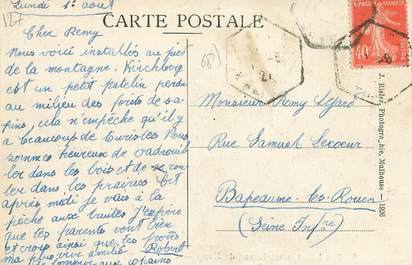 Lundi 1º aout
127
CARTE POSTALE
Cher Remy
Nous voici installés au pied
de la montagne. Kirchberg
est un petit patelin perdu
au milieu des forêts de sa-
pins, cela n'empêche qu'il y
a beaucoup de touristes Nous
sommes heureux de vadrouil-
ler dans les bois et de se rou-
ler dans les prairies Cet
après midi je vais à la
pêche aux truites J'espère
que les parents vont bien
et crois ainsi que les
ma plus vive amitié Robert
(68)
40c
Monsieur Remy
Rue Samuel Lecoeur
Bapeaume-les-Rouen
(Seine Infre)
J. Bader, Photogravure, Mulhouse — 1926